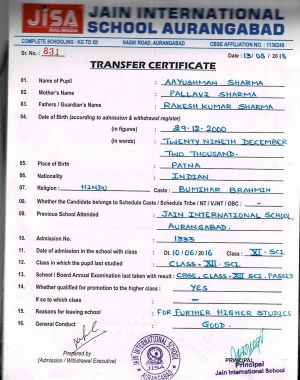 JISA
JAIN INTERNATIONAL
SCHOOL AURANGABAD
COMPLETE SCHOOLING : KG TO XII NASIK ROAD, AURANGABAD CBSE AFFILIATION NO.: 1130249
Sr. No.: 831 Date : 13/08/2018
TRANSFER CERTIFICATE
01. Name of Pupil : AAYUSHMAN SHARMA
02. Mother's Name : PALLAVI SHARMA
03. Fathers / Guardian's Name : RAKESH KUMAR SHARMA
04. Date of Birth (according to admission & withdrawal register)
(in figures) : 29-12-2000
(in words) : TWENTY NINETH DECEMBER
TWO THOUSAND.
05. Place of Birth : PATNA
06. Nationality : INDIAN
07. Religion : HINDU Caste : BUMIHAR BRAHMIN
08. Whether the Candidate belongs to Schedule Caste / Schedule Tribe / NT / VJNT / OBC : –
09. Previous School Attended : JAIN INTERNATIONAL SCHOOL,
AURANGABAD.
10. Admission No. : 1333
11. Date of admission in the school with class : Dt. 10/06/2016 Class : XI - SCI.
12. Class in which the pupil last studied : CLASS - XII - SCI.
13. School / Board Annual Examination last taken with result : CBSE, CLASS - XII SCI. PASSED
14. Whether qualified for promotion to the higher class : YES
If so to which class : –
15. Reasons for leaving school : FOR FURTHER HIGHER STUDIES
16. General Conduct : GOOD.
Prepared by
(Admission / Withdrawal Executive)
JAIN INTERNATIONAL SCHOOL
JISA
AURANGABAD
PRINCIPAL
Principal
Jain International School